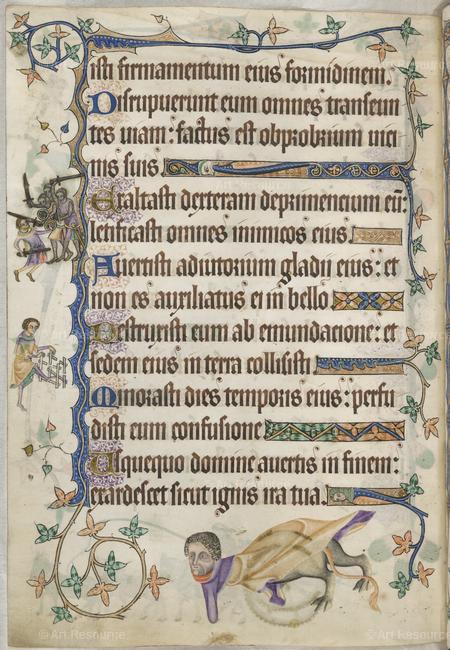 isti firmamentum eius formidinem.
Disrupuerunt eum omnes transeun
tes uiam : factus est obprobrium uici
nis suis.
Exaltasti dexteram deprimencium eū :
letificasti omnes inimicos eius.
Auertisti adiutorium gladii eius : et
non es auxiliatus ei in bello.
Destruxisti eum ab emundacione : et
sedem eius in terra collisisti
Minorasti dies temporis eius : perfu
disti eum confusione
Usquequo domine auertis in finem :
exardescet sicut ignis ira tua.
© Art Resource
© Art Resource